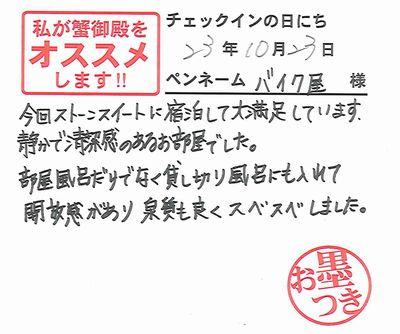 私が蟹御殿を
オススメ
します!!
チェックインの日にち
23年10月23日
ペンネーム バイク屋 様
今回ストーンスイートに宿泊して大満足しています.
静かで清潔感のあるお部屋でした。
部屋風呂だけでなく貸し切り風呂にも入れて
開放感があり泉質も良くスベスベしました。
お墨つき